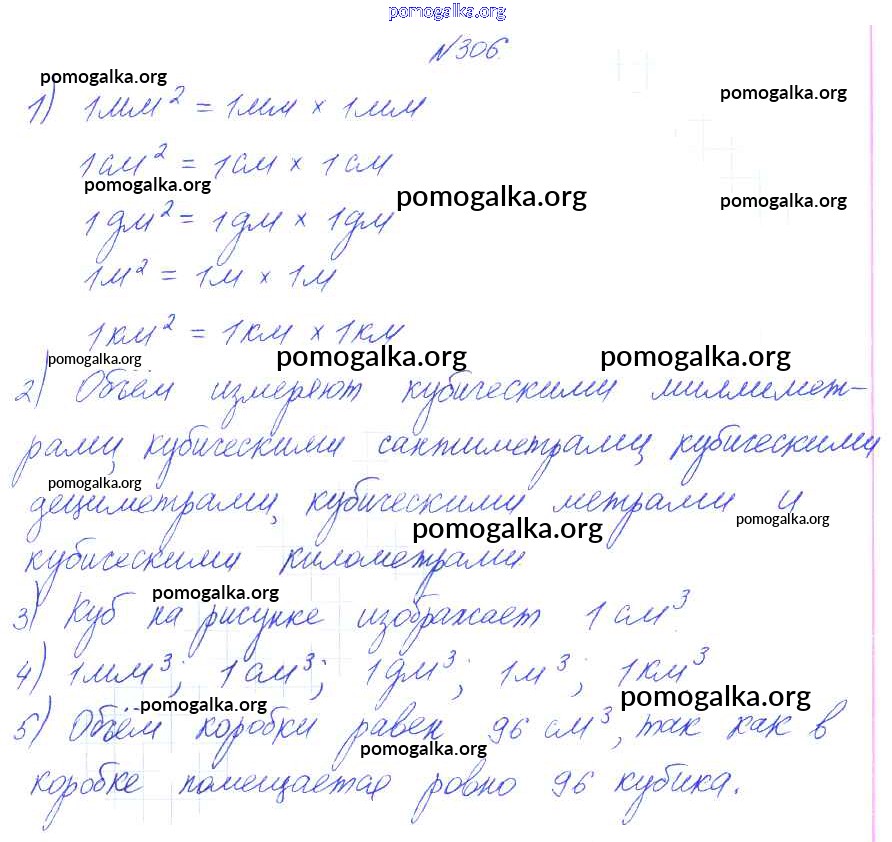 pomogalka.org
№306.
pomogalka.org
pomogalka.org
1) 1мм² = 1мм × 1мм
1см² = 1см × 1см
pomogalka.org
pomogalka.org
pomogalka.org
1дм² = 1дм × 1дм
1м² = 1м × 1м
1км² = 1км × 1км
pomogalka.org
pomogalka.org
pomogalka.org
2) Объём измеряют кубическими миллимет-
рами, кубическими сантиметрами, кубическими
pomogalka.org
дециметрами, кубическими метрами и
pomogalka.org
pomogalka.org
кубическими километрами.
pomogalka.org
3) Куб на рисунке изображает 1 см³.
4) 1мм³; 1см³; 1дм³; 1м³; 1км³
pomogalka.org
pomogalka.org
5) Объём коробки равен 96 см³, так как в
pomogalka.org
коробке помещается ровно 96 кубика.